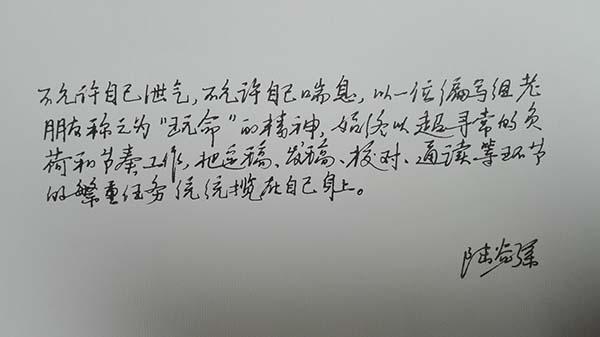 不允许自己泄气，不允许自己喘息，以一位编写组老
朋友称之为“玩命”的精神，始终以超寻常的负
荷和节奏工作，把近稿、发稿、校对、通读等环节
的繁重任务统统揽在自己身上。
陆谷孙